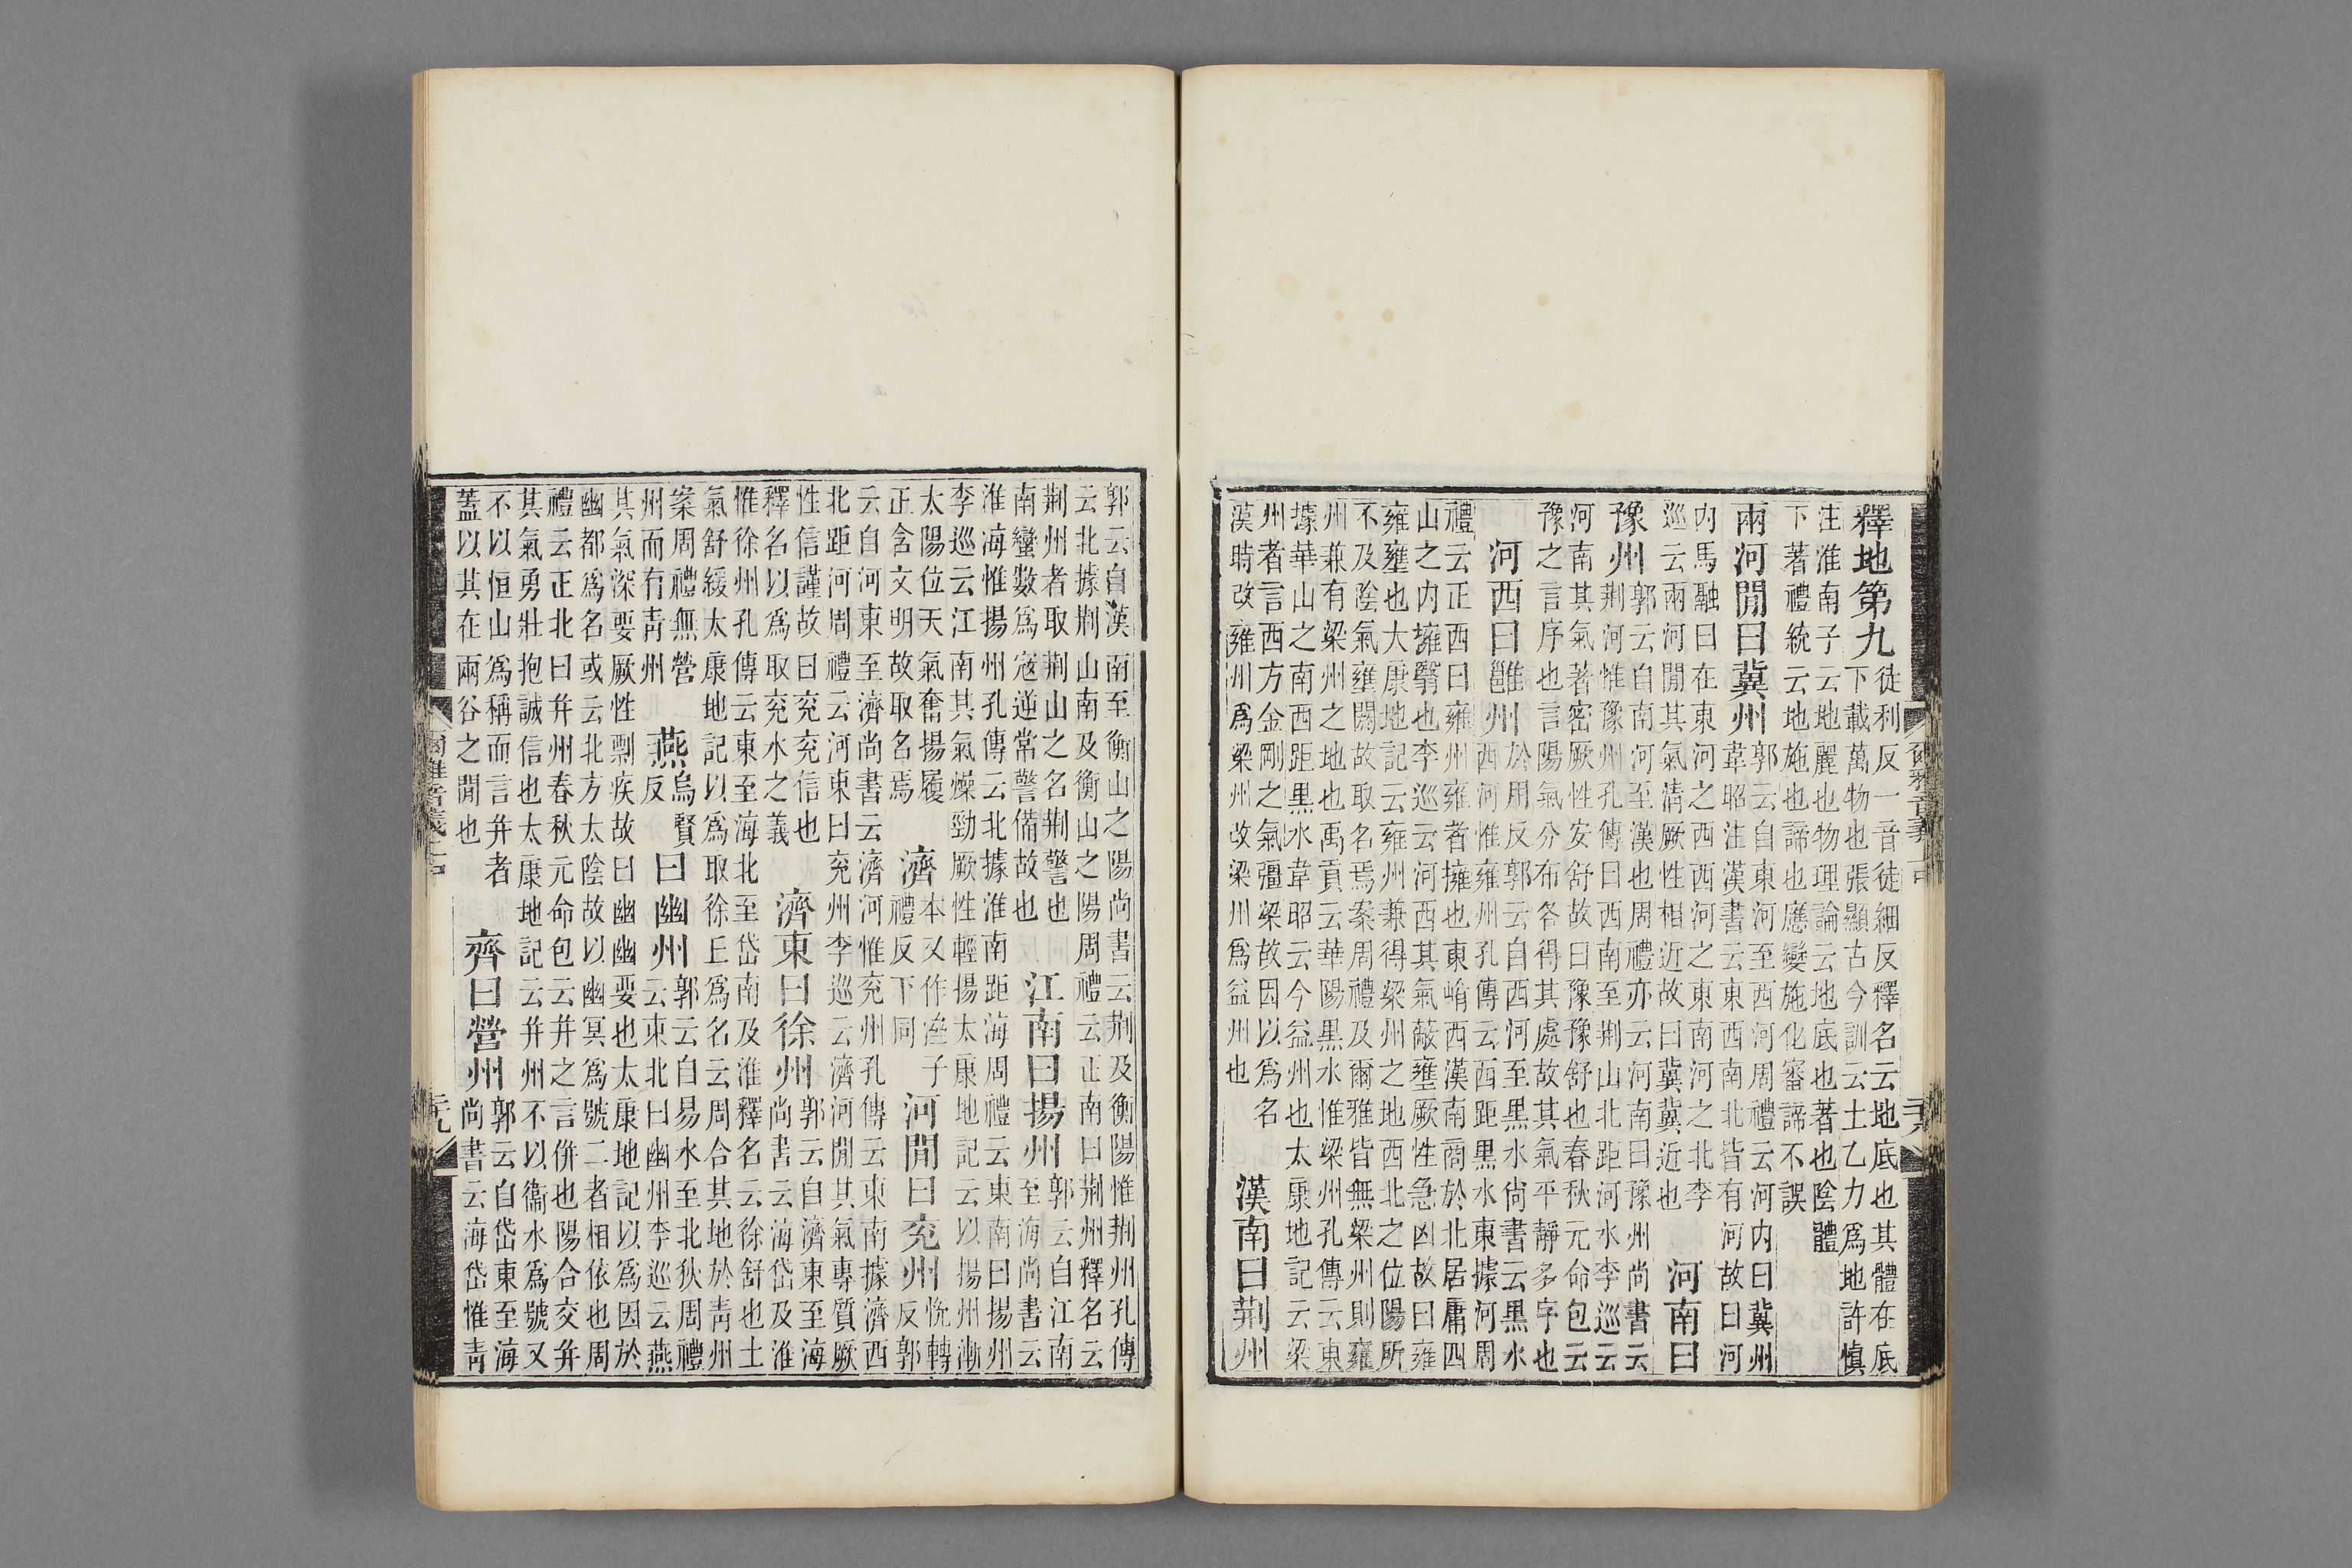 釋地第九
徒利反一音徒細反釋名云地底也其體在底
下載萬物也張顯古今訓云土乙力爲地許慎
注淮南子云地麗也物理論云地底也著也陰體
下著禮統云地施也諦也應變施化審諦不誤
兩河閒曰冀州
郭云自東河至西河周禮云河内曰冀州
韋昭注漢書云東西南北皆有河故曰河
内馬融曰在東河之西西河之東南河之北李
巡云兩河閒其氣清厥性相近故曰冀冀近也
河南曰
豫州
郭云自南河至漢也周禮亦云河南曰豫州尚書云
荆河惟豫州孔傳曰西南至荆山北距河水李巡云
河南其氣著密厥性安舒故曰豫豫舒也春秋元命包云
豫之言序也言陽氣分布各得其處故其氣平靜多字也
河西曰雝州
於用反郭云自西河至黒水尚書云黒水
西河惟雍州孔傳云西距黒水東據河周
禮云正西曰雍州雍者擁也東崤西漢南商於北居庸四
山之内擁翳也李巡云河西其氣蔽壅厥性急凶故曰雍
雍壅也大康地記云雍州兼得梁州之地西北之位陽所
不及陰氣壅閼故取名焉案周禮及爾雅皆無梁州則雍
州兼有梁州之地也禹貢云華陽黒水惟梁州孔傳云東
據華山之南西距黒水韋昭云今益州也太康地記云梁
州者言西方金剛之氣彊梁故因以爲名
漢時改雍州爲梁州改梁州爲益州也
漢南曰荆州
郭云自漢南至衡山之陽尚書云荆及衡陽惟荆州孔傳
云北據荆山南及衡山之陽周禮云正南曰荆州釋名云
荆州者取荆山之名荆警也
南蠻數爲寇逆常警備故也
江南曰揚州
郭云自江南
至海尚書云
淮海惟揚州孔傳云北據淮南距海周禮云東南曰揚州
李巡云江南其氣燥勁厥性輕揚太康地記云以揚州漸
太陽位天氣奮揚履
正含文明故取名焉
濟
本又作泲子
禮反下同
河閒曰兖州
悅轉
反郭
云自河東至濟尚書云濟河惟兖州孔傳云東南據濟西
北距河周禮云河東曰兖州李巡云濟河閒其氣專質厥
性信謹故曰兖兖信也
釋名以爲取兖水之義
濟東曰徐州
郭云自濟東至海
尚書云海岱及淮
惟徐州孔傳云東至海北至岱南及淮釋名云徐舒也土
氣舒緩太康地記以爲取徐丘爲名云周合其地於青州
案周禮無營
州而有青州
燕
烏賢
反
曰幽州
郭云自易水至北狄周禮
云東北曰幽州李巡云燕
其氣深要厥性剽疾故曰幽幽要也太康地記以爲因於
幽都爲名或云北方太陰故以幽冥爲號二者相依也周
禮云正北曰并州春秋元命包云并之言併也陽合交并
其氣勇壯抱誠信也太康地記云并州不以衞水爲號又
不以恒山爲稱而言并者
蓋以其在兩谷之閒也
齊曰營州
郭云自岱東至海
尚書云海岱惟青